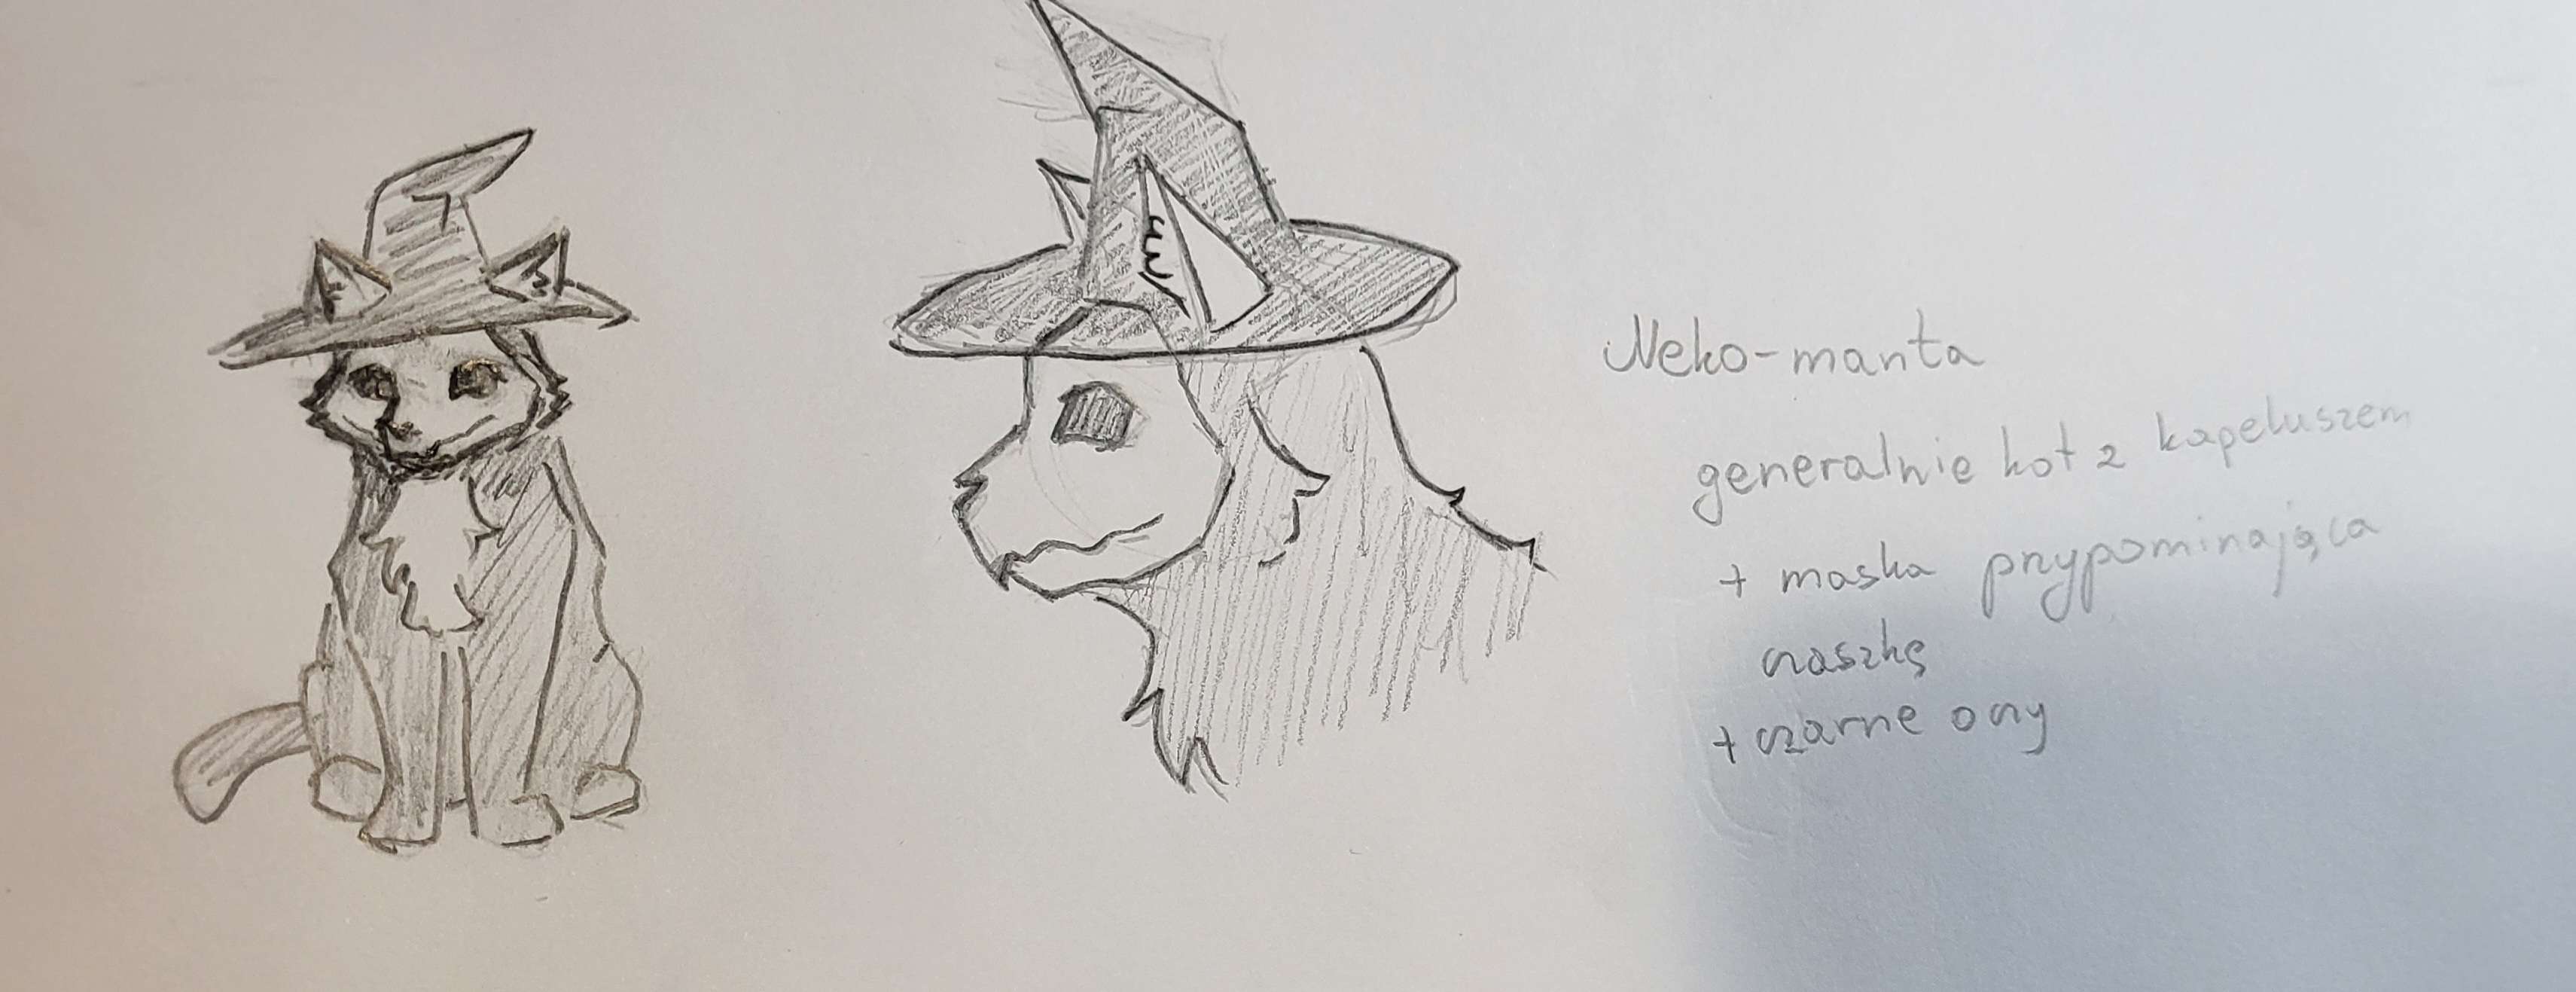 Neko-manta
generalnie kot z kapeluszem
+ maska przypominająca
czaszkę
+ czarne oczy